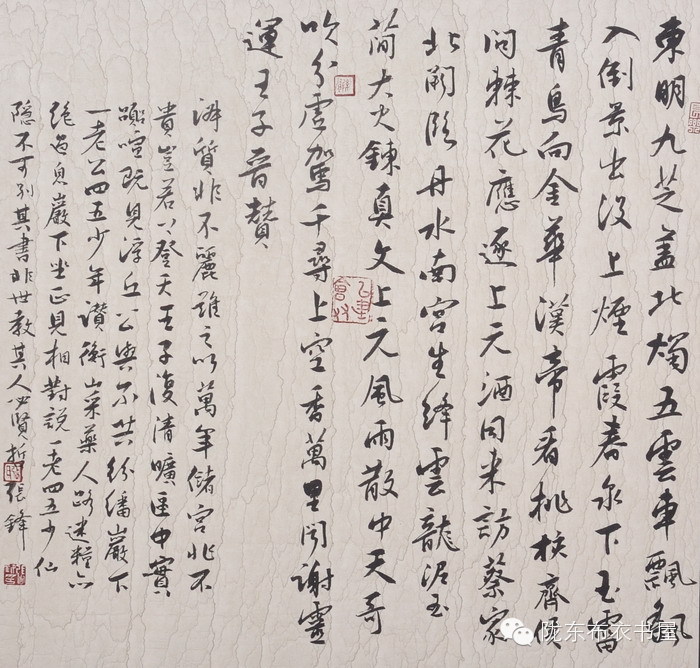 東明九芝盖北燭五雲車飄飖
入倒景出没上煙霞春泉下玉霤
青鳥向金華漢帝看桃核齊侯
問棘花應逐上元酒同来訪蔡家
北闕臨丹水南宮生絳雲龍泥玉
簡大火鍊真文上元風雨散中天哥
吹分虛駕千尋上空香萬里聞謝靈
運王子晋贊
淑質非不麗難之以萬年儲宮非不
貴豈若上登天王子復清曠區中實
喧既見浮丘公與尔共紛繙巖下
一老公四五少年讚衡山采藥人路迷糧亦
絶過息巖下坐正見相對説一老四五少仙
隐不可别其書非世教其人必賢哲張鋒
陇东布衣书屋